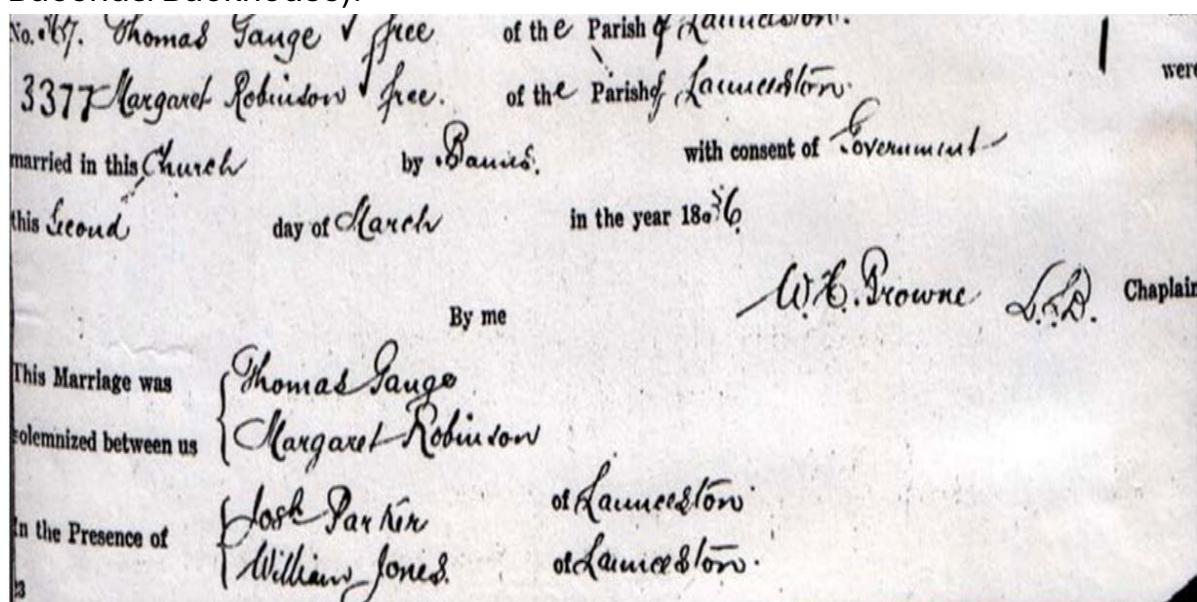 No. Thomas Gauge free of the Parish of Launceston.
3377 Margaret Robinson free. of the Parish of Launceston. were
married in this Church by Banns. with consent of Government
this Second day of March in the year 1836
W. H. Browne L.L.D. Chaplain
By me
This Marriage was Thomas Gauge
solemnized between us Margaret Robinson
In the Presence of Josh Parker of Launceston
William Jones. of Launceston.